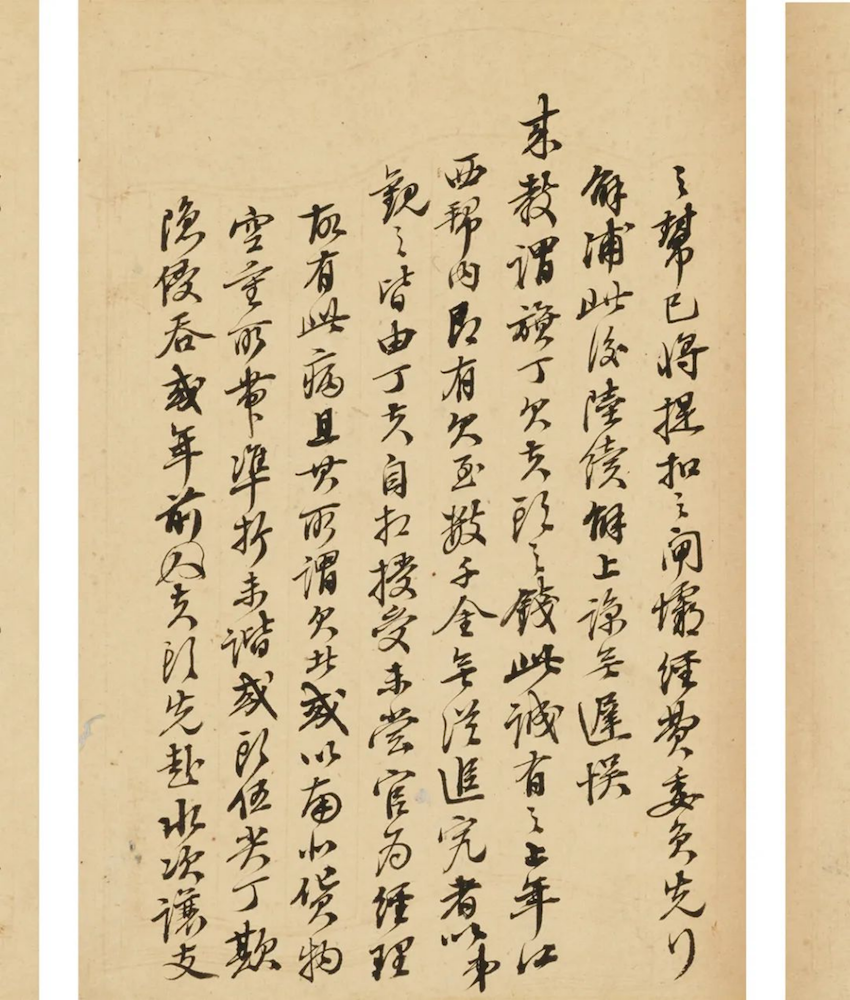 之幫已將提扣之閘壩經費委員先行
解浦此後陸續解上諒無遲悞
来教謂旗丁欠夫頭之錢此誠有之上年江
西幫内即有欠至數千金無從追究者以弟
觀之皆由丁夫自扣授受未嘗官為經理
故有此病且其所謂欠者或以南北貨物
空重所帶準折未諧或頭伍夫丁欺
隐侵吞或年前夫頭先赴水次讓支